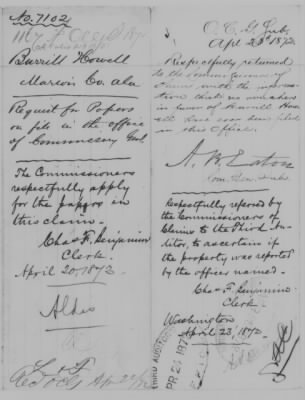 No. 7102
Burrill Howell
Marion Co. Ala
Request for Papers
on file in the office
of Commissary Genl.
The Commissioners
respectfully apply
for the papers in
this claim.
Chas. F. Benjamin
Clerk.
April 20, 1872.
Aldis
O. C. G. Sub.
Apl 23d 1872.
Respectfully returned
to the Commissioners of
Claims with the information
that no vouchers
in favor of Burrill Howell
have been filed
in this Office.
A. B. Eaton
Com. Gen. Subs.
Respectfully referred by
the Commissioners of
Claims to the Third Auditor,
to ascertain if
the property was reported
by the officer named.
Chas F. Benjamin
Clerk.
Washington
April 23, 1872.
THIRD AUDITOR